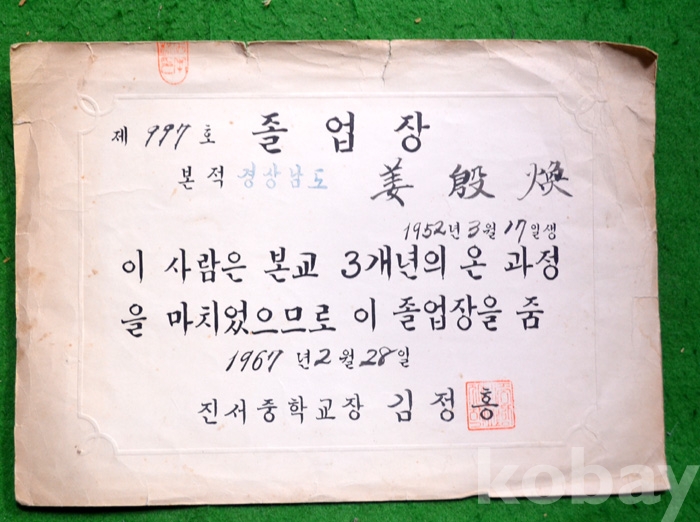 제 997 호 졸업장
본적 경상남도 姜殷煥
1952년 3월 17일생
이 사람은 본교 3개년의 온 과정
을 마치었으므로 이 졸업장을 줌
1967 년 2 월 28 일
진서중학교장 김정홍
kobay